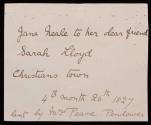 Jane Neale to her dear friend
Sarah Lloyd
Christians town
4th month 26th 1827
sent by Mrs Pease Pendower